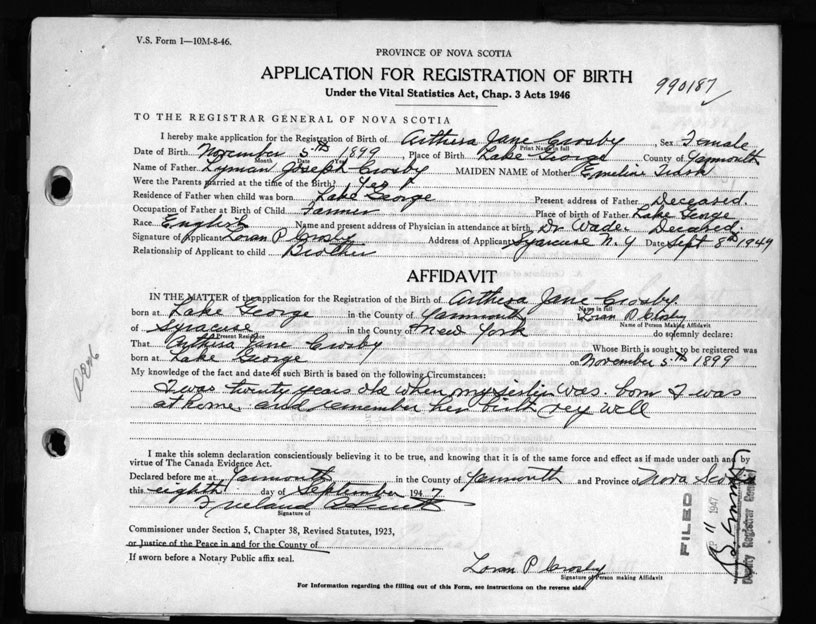 V.S. Form 1—10M-8-46.
PROVINCE OF NOVA SCOTIA
APPLICATION FOR REGISTRATION OF BIRTH
990187
Under the Vital Statistics Act, Chap. 3 Acts 1946
TO THE REGISTRAR GENERAL OF NOVA SCOTIA
I hereby make application for the Registration of Birth of Arthesa Jane Crosby, Sex Female
Print Name in full
Date of Birth November 5th 1899, Place of Birth Lake George County of Yarmouth
Month Date Year
Name of Father Lyman Joseph Crosby MAIDEN NAME of Mother Emeline Trask
Were the Parents married at the time of the Birth? Yes
Residence of Father when child was born Lake George Present address of Father Deceased.
Occupation of Father at Birth of Child Farmer Place of birth of Father Lake George
Race English Name and present address of Physician in attendance at birth Dr Wade. Deceased.
Signature of Applicant Loran P Crosby Address of Applicant Syracuse N.Y Date Sept 8th 1949
Relationship of Applicant to child Brother
AFFIDAVIT
IN THE MATTER of the application for the Registration of the Birth of Arthesa Jane Crosby.
Name in full
born at Lake George in the County of Yarmouth Loran P Crosby
Name of Person Making Affidavit
of Syracuse in the County of New York do solemnly declare:
Present Residence
That Arthesa Jane Crosby Whose Birth is sought to be registered was
born at Lake George on November 5th 1899
My knowledge of the fact and date of such Birth is based on the following Circumstances:
I was twenty years old when my sister was born I was
at home and remember her birth very well
I make this solemn declaration conscientiously believing it to be true, and knowing that it is of the same force and effect as if made under oath and by
virtue of The Canada Evidence Act.
Declared before me at Yarmouth in the County of Yarmouth and Province of Nova Scotia
this eighth day of September 1947
Signature of
Commissioner under Section 5, Chapter 38, Revised Statutes, 1923,
or Justice of the Peace in and for the County of
If sworn before a Notary Public affix seal.
Loran P Crosby
Signature of Person making Affidavit
For Information regarding the filling out of this Form, see instructions on the reverse side.
FILED
11 1947
Deputy Registrar General